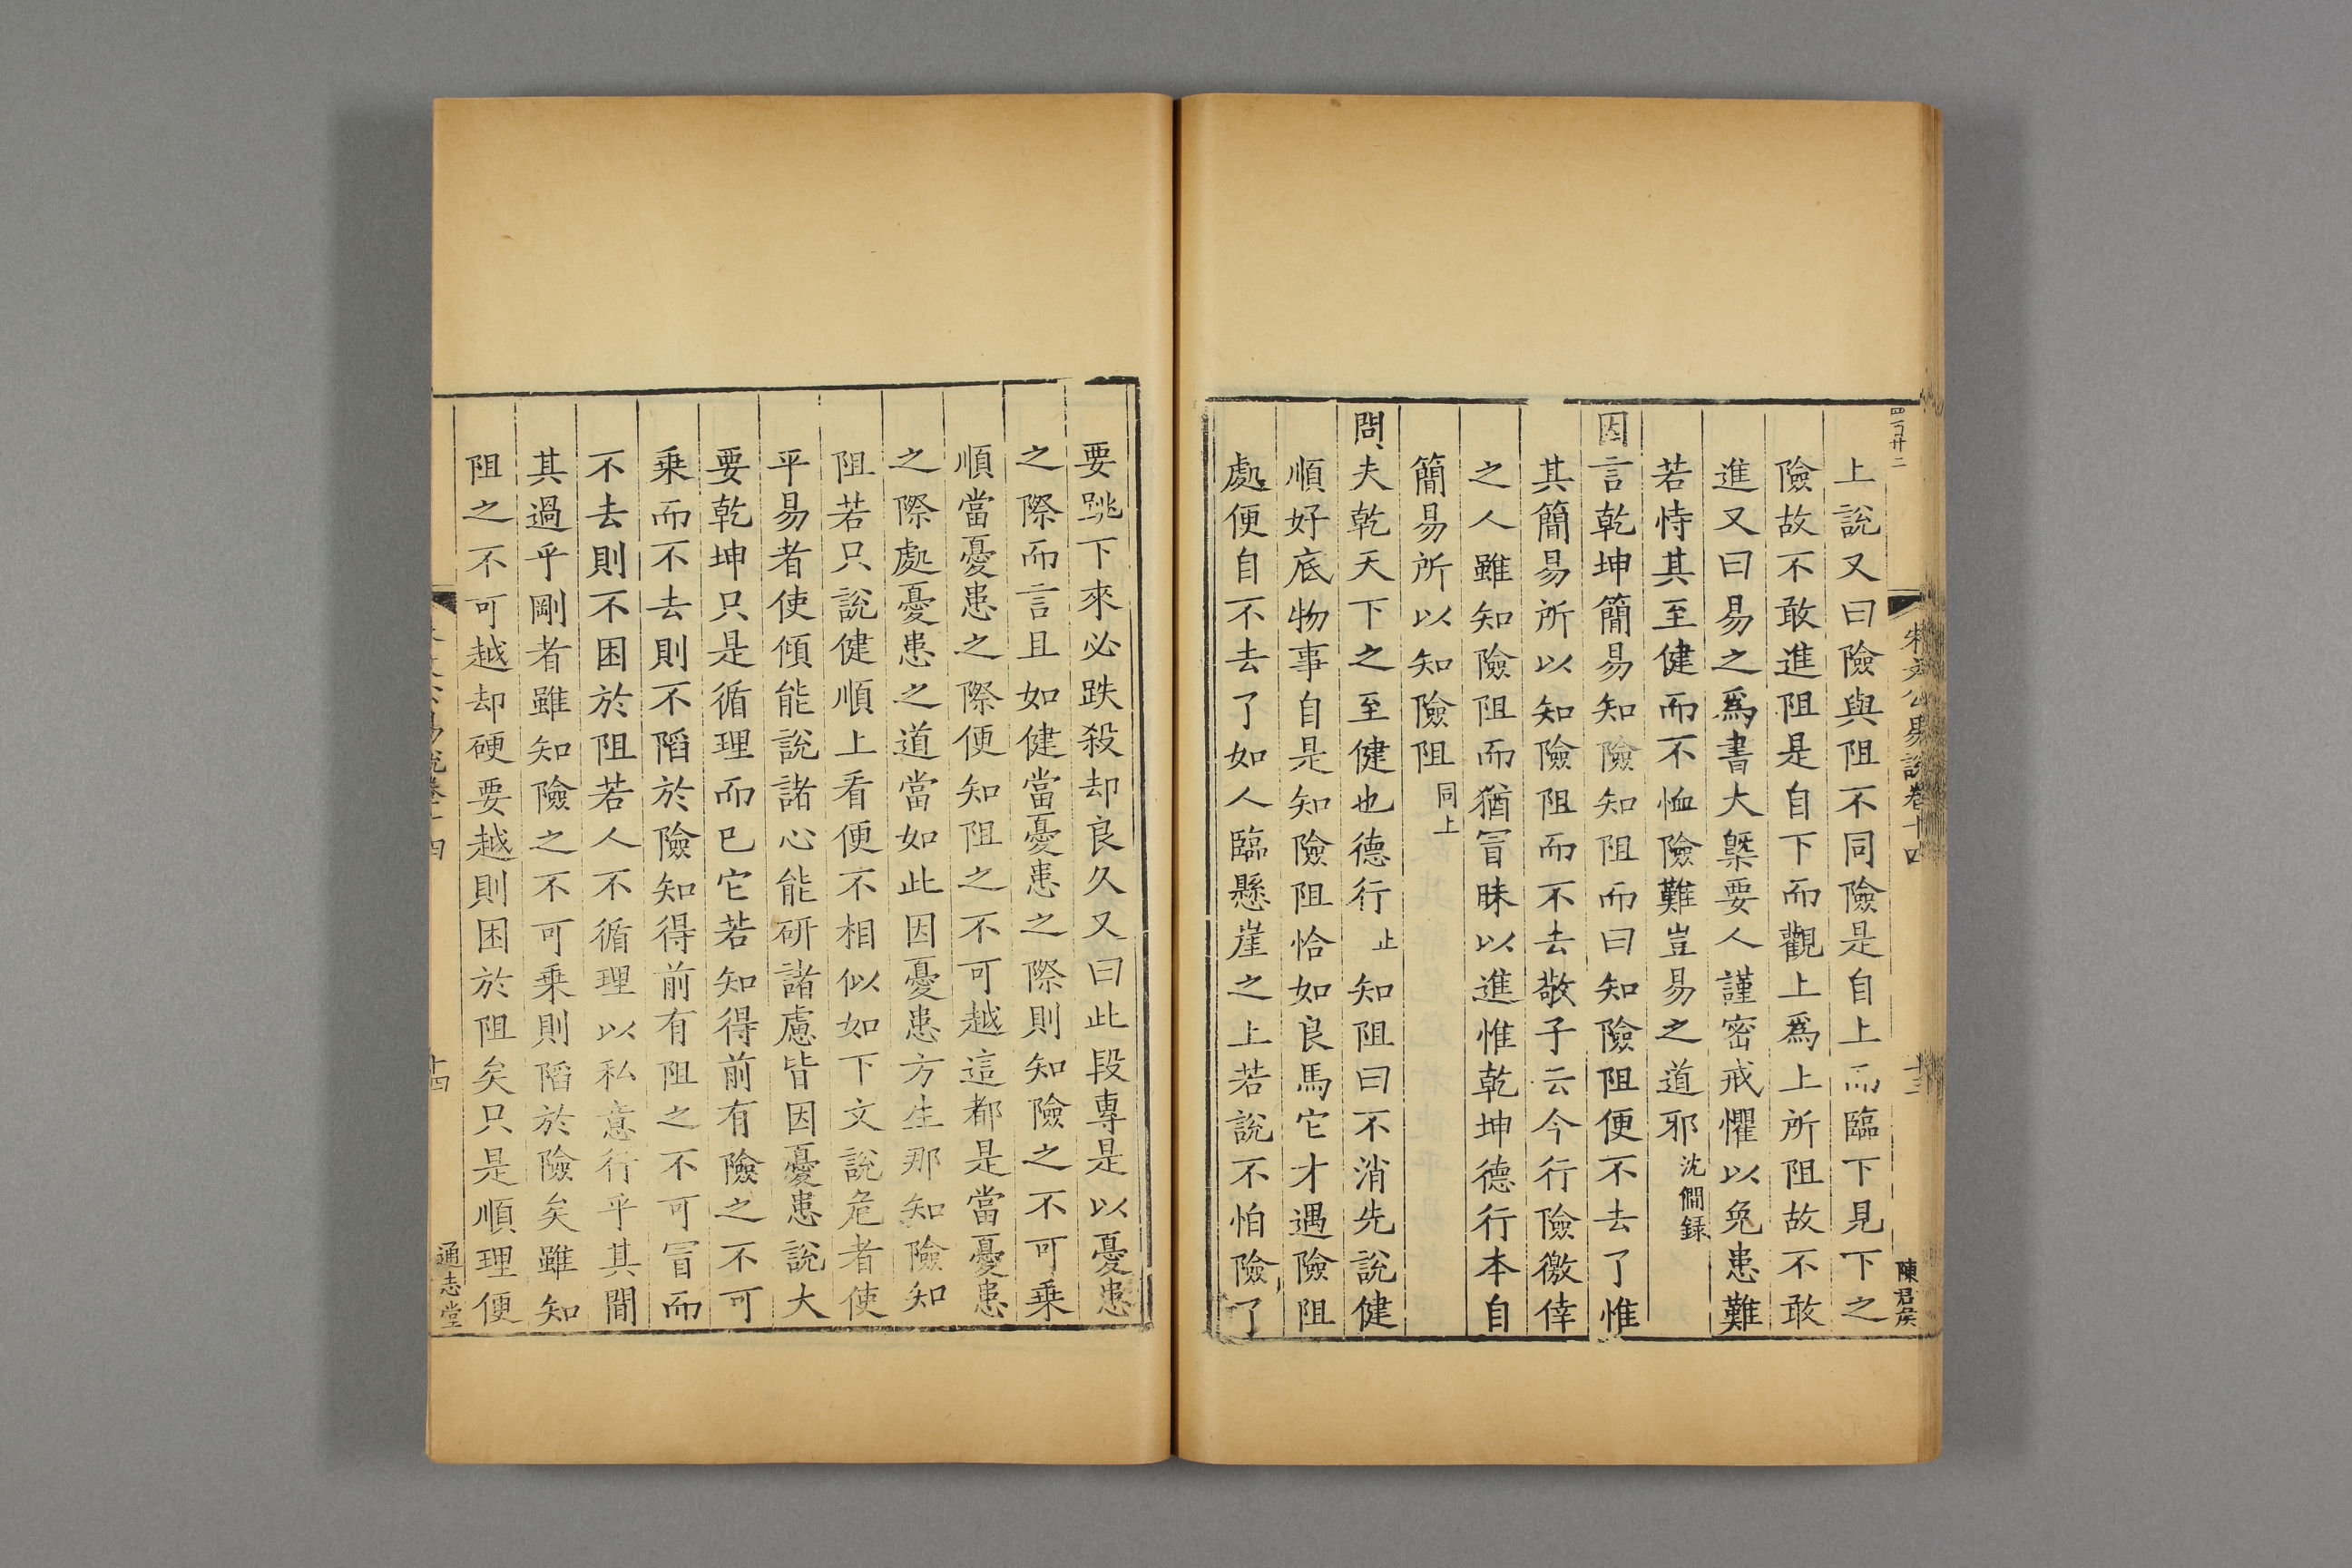 四百廿二
朱文公易說卷十四
十三
陳君矦
上說又曰險與阻不同險是自上而臨下見下之
險故不敢進阻是自下而觀上爲上所阻故不敢
進又曰易之爲書大槩要人謹密戒懼以免患難
若恃其至健而不恤險難豈易之道邪沈僩録
因言乾坤簡易知險知阻而曰知險阻便不去了惟
其簡易所以知險阻而不去敬子云今行險徼倖
之人雖知險阻而猶冒昧以進惟乾坤德行本自
簡易所以知險阻同上
問夫乾天下之至健也德行止知阻曰不消先說健
順好底物事自是知險阻恰如良馬它才遇險阻
處便自不去了如人臨懸崖之上若說不怕險了
要跳下來必跌殺却良久又曰此段專是以憂患
之際而言且如健當憂患之際則知險之不可乗
順當憂患之際便知阻之不可越這都是當憂患
之際處憂患之道當如此因憂患方生那知險知
阻若只說健順上看便不相似如下文說危者使
平易者使傾能說諸心能研諸慮皆因憂患說大
要乾坤只是循理而已它若知得前有險之不可
乗而不去則不陷於險知得前有阻之不可冒而
不去則不困於阻若人不循理以私意行乎其間
其過乎剛者雖知險之不可乗則陷於險矣雖知
阻之不可越却硬要越則困於阻矣只是順理便
易說卷十四
十四
通志堂